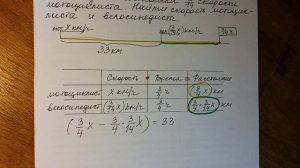 скорости
мотоциклиста. Найти скорость мотоцик-
листа и велосипедиста
x км/г
33 км
Скорость • Время = Расстояние
мотоциклист x км/г 3/4 г (3/4 x) км
велосипедист (3/14 x) км/г 3/4 г (3/4 · 3/14 x) км
(3/4 x − 3/4 · 3/14 x) = 33